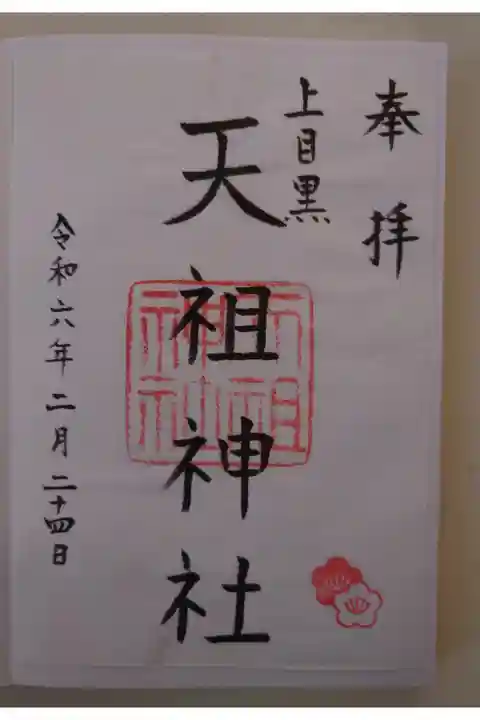 奉拝
上目黒
天祖神社
天祖神社
令和六年二月二十四日